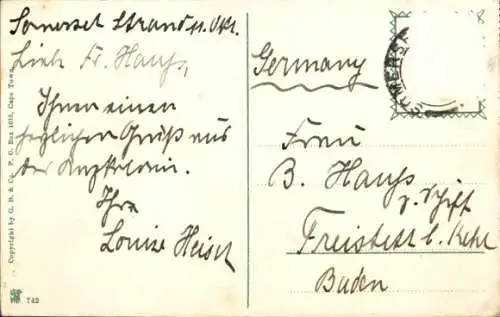 Somerset Strand 11. Okt.
Liebe Fr. Hauß,
Ihnen einen
herzlichen Gruß aus
der Kapkolonie.
Ihre
Louise Heisel
Germany
Frau
B. Hauß
z. Schiff
Freistett b. Kehl
Baden
SOMERSET
Copyright by G. B. & Co. P. O. Box 1016, Cape Town
742